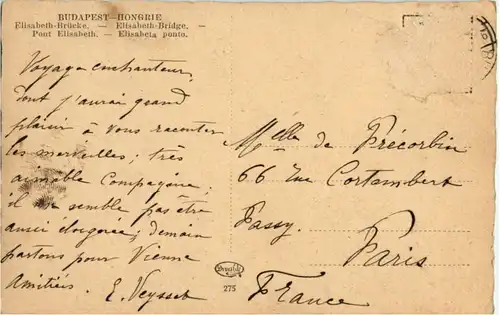 BUDAPEST—HONGRIE
Elisabeth-Brücke. — Elisabeth-Bridge. —
Pont Elisabeth. — Elisabeta ponto.
Voyage enchanteur,
dont j'aurai grand
plaisir à vous raconter
les merveilles; très
aimable compagnie;
il me semble pas être
aussi éloignée; demain
partons pour Vienne
Amitiés. E. Veysset
Melle de Précorbin
66 Rue Cortambert
Passy.
Paris
France
275